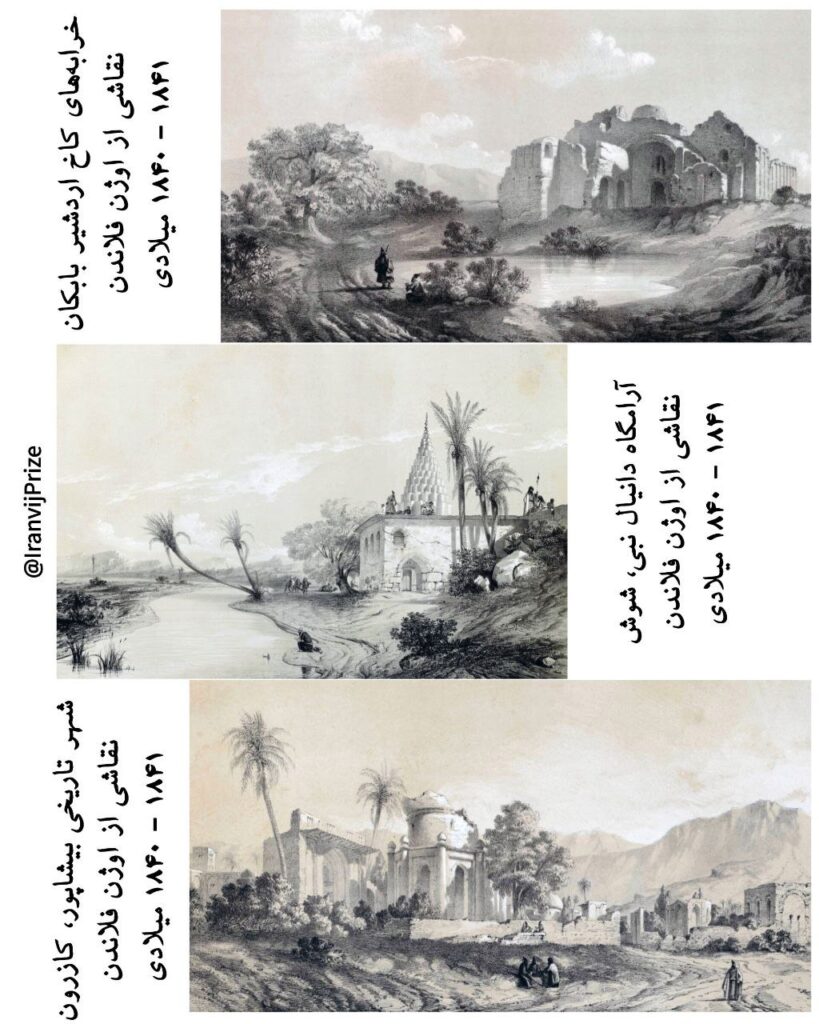 خرابه‌های کاخ اردشیر بابکان
نقاشی از اوژن فلاندن
۱۸۴۰ – ۱۸۴۱ میلادی
آرامگاه دانیال نبی، شوش
نقاشی از اوژن فلاندن
۱۸۴۰ – ۱۸۴۱ میلادی
@IranvijPrize
شهر تاریخی بیشاپور، کازرون
نقاشی از اوژن فلاندن
۱۸۴۰ – ۱۸۴۱ میلادی